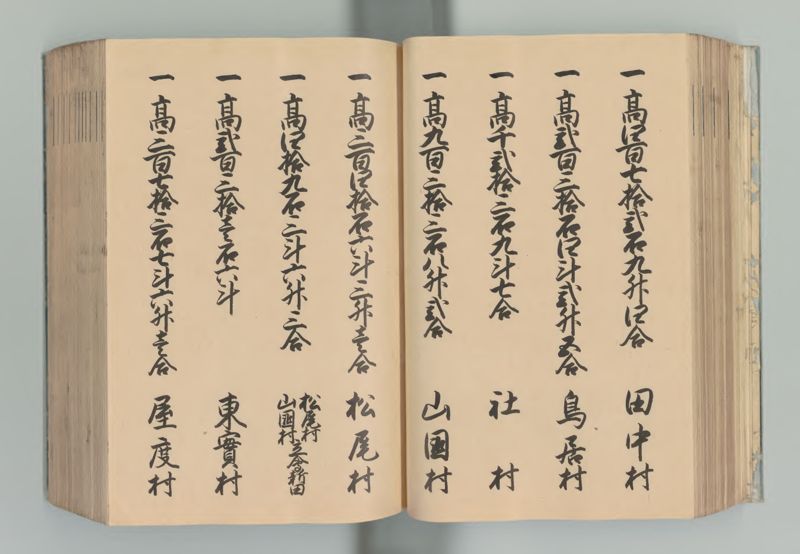 一 髙四百七拾弐石九升四合 田中村
一 髙弐百三拾石四斗弐升五合 鳥居村
一 髙千弐拾三石九斗七合 社村
一 髙九百三拾三石八升弐合 山國村
一 髙三百四拾石六斗三升壱合 松尾村
一 髙四拾九石三斗六升三合 松尾村
山國村
立會新田
一 髙弐百三拾壱石六斗 東實村
一 髙三百七拾三石七斗六升壱合 屋度村